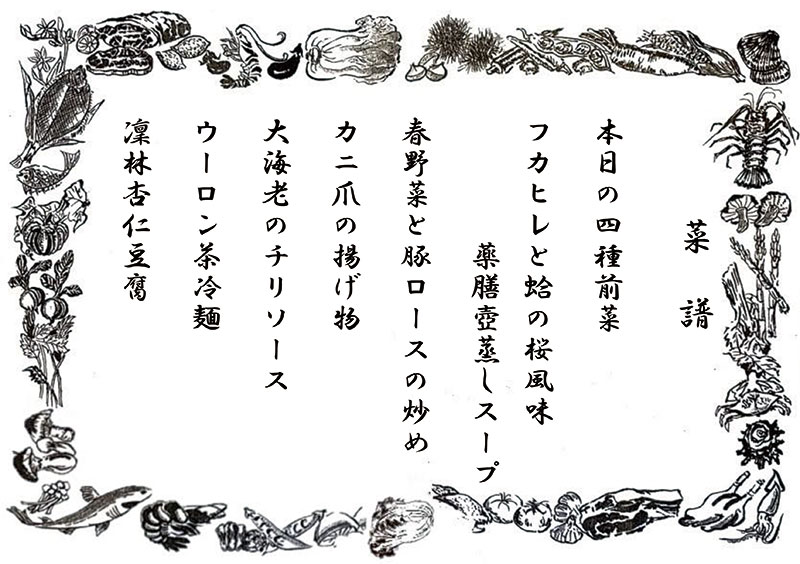 菜譜
本日の四種前菜
フカヒレと蛤の桜風味
薬膳壺蒸しスープ
春野菜と豚ロースの炒め
カニ爪の揚げ物
大海老のチリソース
ウーロン茶冷麺
凜林杏仁豆腐